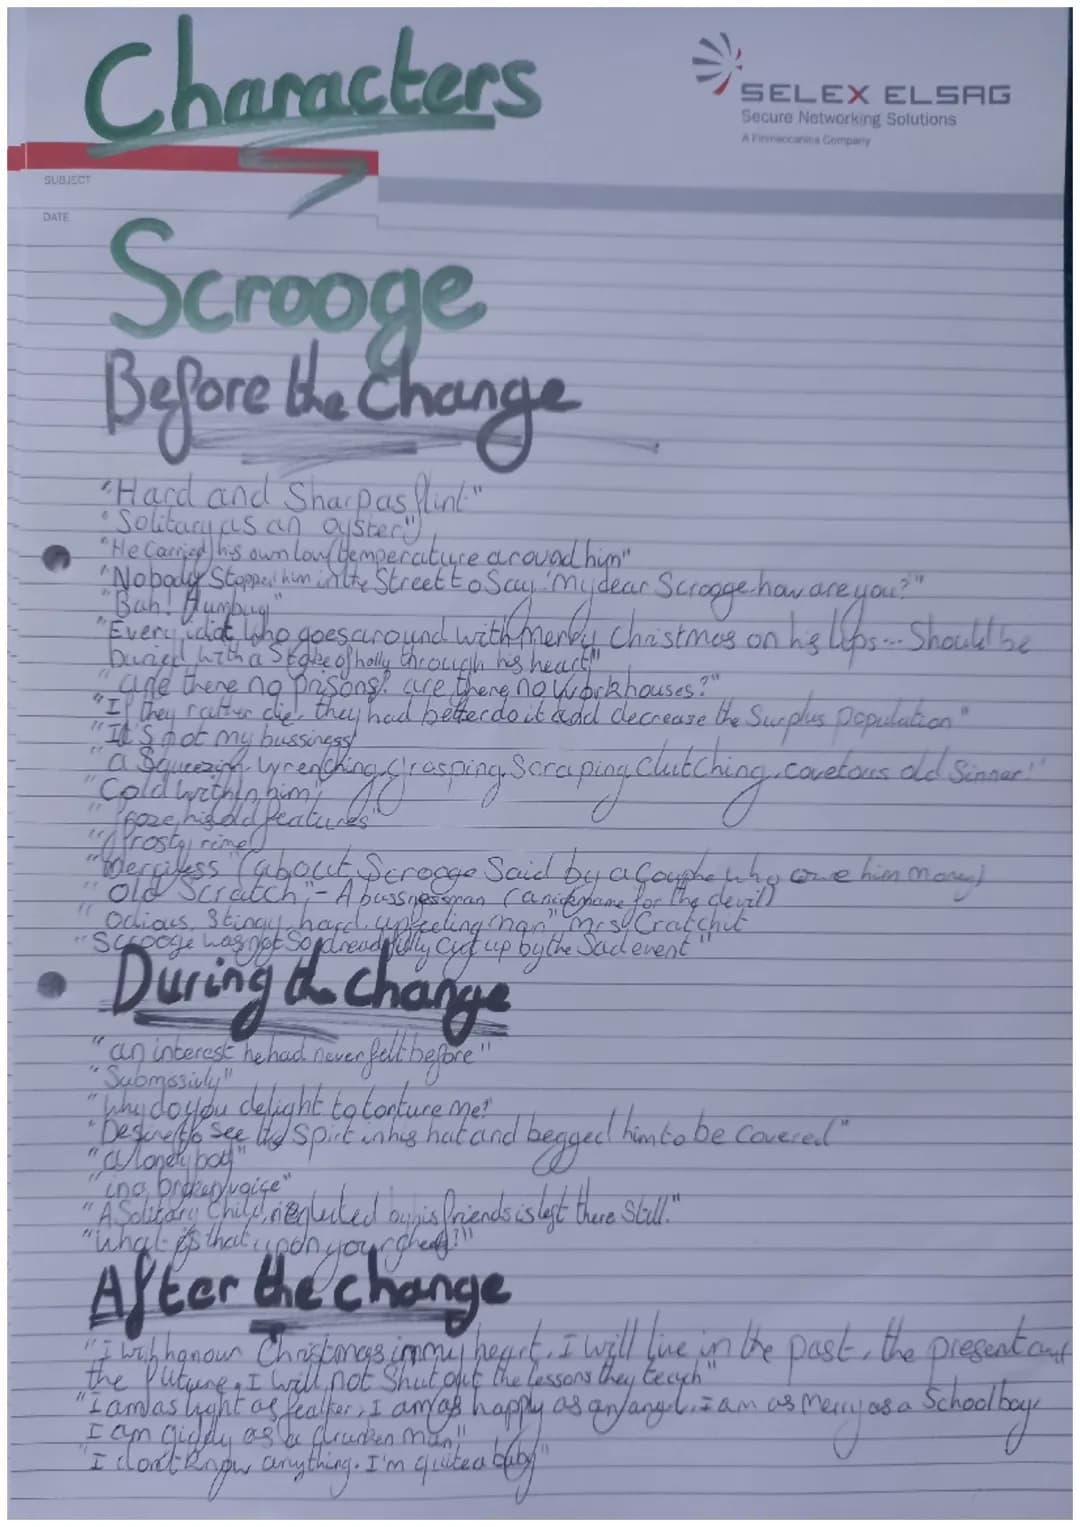 Characters
SELEX ELSAG
Secure Networking Solutions
A Finmeccanica Company
SUBJECT
DATE
Scrooge
Before the Change
"Hard and Sharp as flint"
"Solitary as an oyster"
"He Carried his own low temperature around him"
"Nobody Stopped him in the Street to Say 'My dear Scrooge how are you?'"
"Bah! Humbug"
"Every idiot who goes around with merry Christmas on his Lips... Should be
buried with a Stake of holly through his heart"
"are there no prisons? are there no workhouses?"
"If they rather die, they had better do it and decrease the Surplus population"
"It's not my bussiness
"a Squeezing, wrenching, grasping, Scraping, Clutching, covetous old Sinner!"
"Cold within him"
"froze his old features"
"frosty rime"
"Merciless" (about Scrooge Said by a Couple who owe him money)
"Old Scratch" - A bussnessman (a nickname for the devil)
"Odious, Stingy, hard, unfeeling man" Mrs Cratchit
"Scrooge was not So dreadfully Cut up by the Sad event"
During the change
"an interest he had never felt before"
"Submssivly"
"Why do you delight to torture me?
"Desire to See the Spirt in his hat and begged him to be Covered"
"a lonely boy"
"in a broken voice"
"A Solitary Child, neglected by his friends is left there Still."
"What is that upon your cheek?"
After the change
"I will honour Christmas in my heart, I will live in the past, the present and
the future, I will not Shut out the lessons they teach"
"I am as light as feather, I am as happy as an angel, I am as Merry as a Schoolboy
I am giddy as a drunken man"
"I don't know anything. I'm quite a baby"